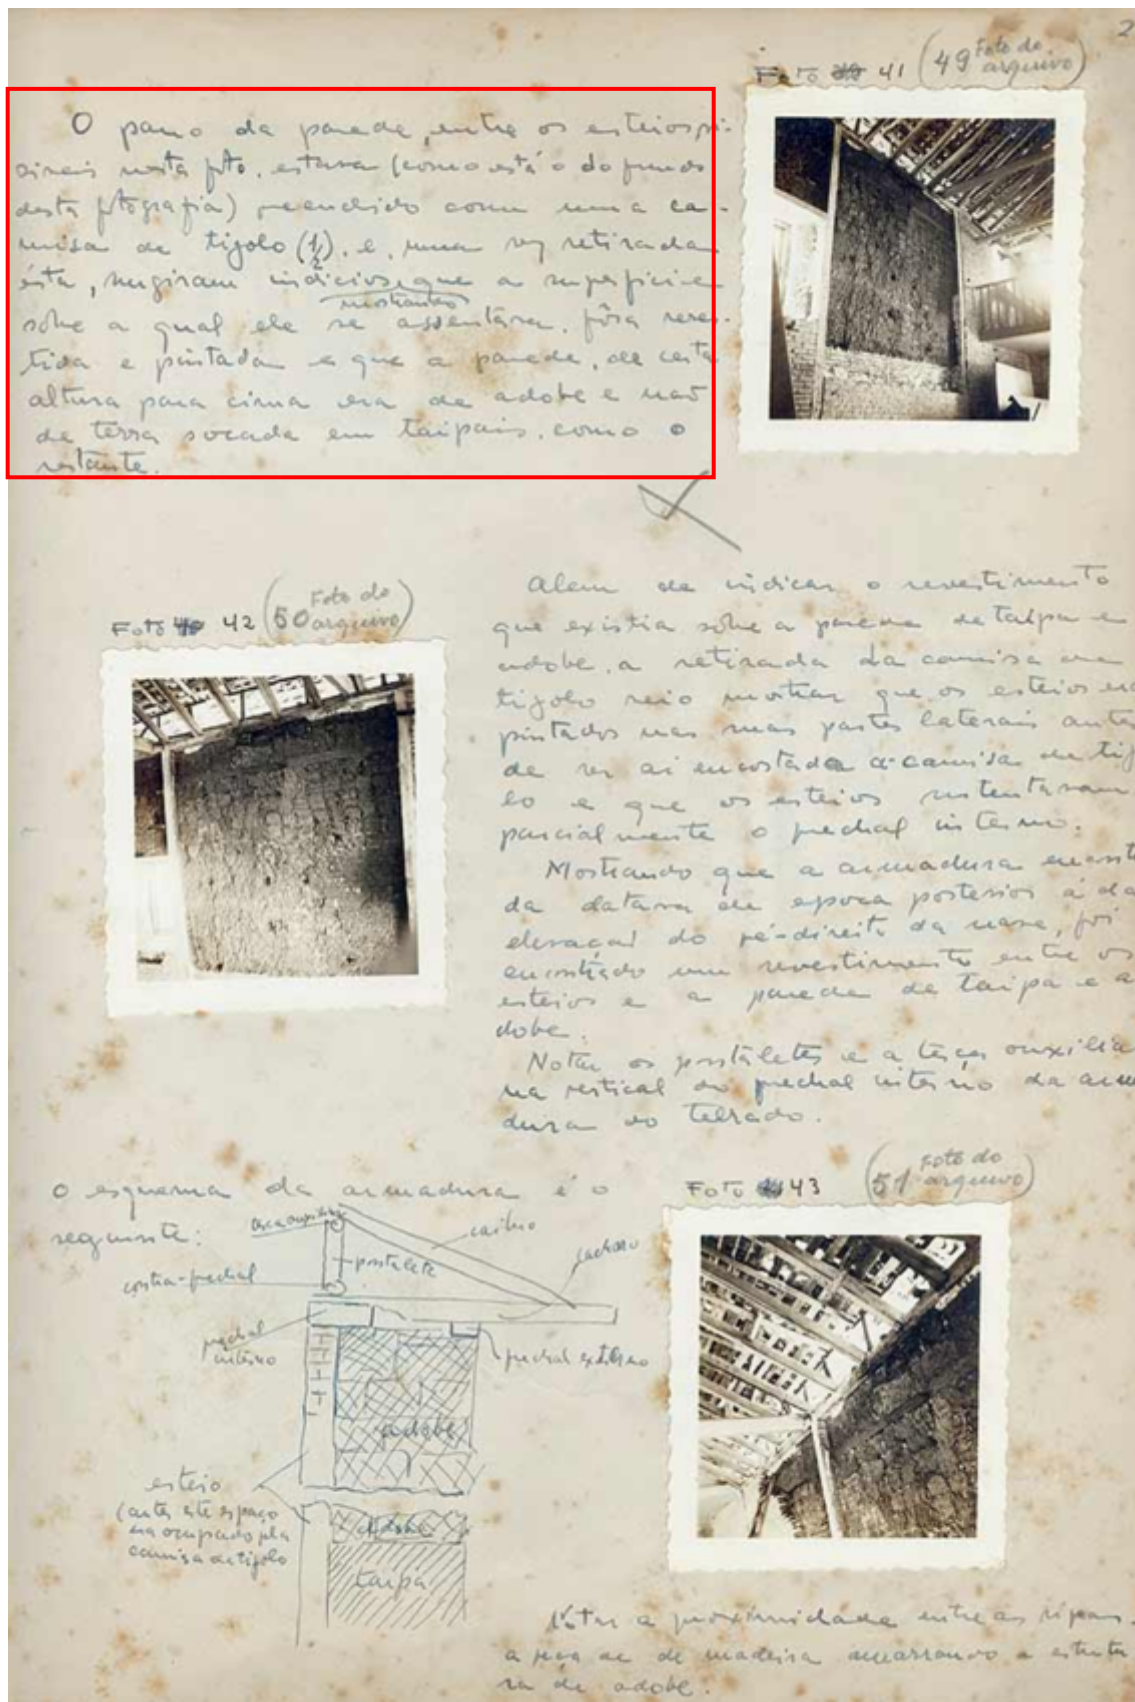 2
Foto 41 (49 Foto do arquivo)
O pano da parede, entre os esteios vi-
síveis nesta fto, estava (como está o do fundo
desta ftografia) preenchido com uma ca-
misa de tijolo (1/2), e, uma vez retirada
ésta, surgiram indicios mostrando que a superficie
sôbre a qual ele se assentára, fôra reves-
tida e pintada e que a parede, de certa
altura para cima era de adobe e não
de terra socada em taipais, como o
restante.
Foto 42 (50 Foto do arquivo)
Alem de indicar o revestimento
que existia sôbre a parede de taipa e
adobe, a retirada da camisa de
tijolo veio mostrar que os esteios
pintados nas suas partes laterais
de ser ai encostada a camisa de
lo e que os esteios sustentavam
parcialmente o frechal interno.
Mostrando que a armadura
da datava de epoca posterior á da
elevação do pé-direito da nave, foi
encontrado um revestimento entre os
esteios e a parede de taipa e a
dobe.
Notar os pontaletes e a terça
na vertical do frechal interno da
dura do telhado.
O esquema da armadura é o
seguinte:
caibro
cachorro
pontalete
contra-frechal
frechal
interno
frechal externo
adobe
esteio
(antes este espaço
era ocupado pela
camisa de tijolo
adobe
taipa
Foto 43 (51 Foto do arquivo)
Notar a proximidade entre as ripas.
a peça de de madeira amarrando a
ra de adobe.